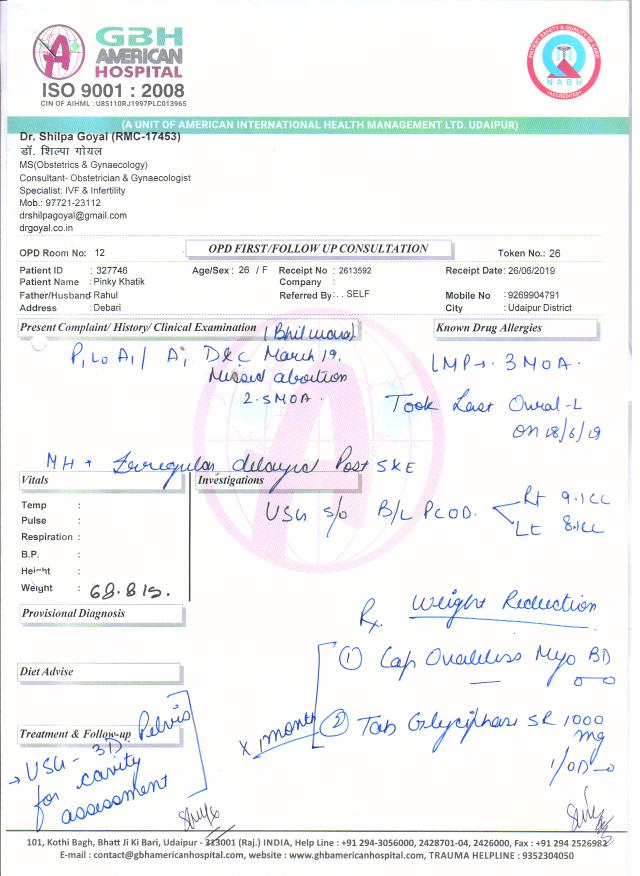 GBH
AMERICAN
HOSPITAL
ISO 9001 : 2008
CIN OF AIHML : U85110RJ1997PLC013965
PATIENT SAFETY & QUALITY OF CARE
NABH
ACCREDITED
(A UNIT OF AMERICAN INTERNATIONAL HEALTH MANAGEMENT LTD. UDAIPUR)
Dr. Shilpa Goyal (RMC-17453)
डॉ. शिल्पा गोयल
MS(Obstetrics & Gynaecology)
Consultant- Obstetrician & Gynaecologist
Specialist: IVF & Infertility
Mob.: 97721-23112
drshilpagoyal@gmail.com
drgoyal.co.in
OPD Room No: 12 OPD FIRST/FOLLOW UP CONSULTATION Token No.: 26
Patient ID : 327746 Age/Sex : 26 / F Receipt No : 2613592 Receipt Date : 26/06/2019
Patient Name : Pinky Khatik Company :
Father/Husband Rahul Referred By : . . SELF Mobile No : 9269904791
Address : Debari City : Udaipur District
Present Complaint/ History/ Clinical Examination (Bhilwara) Known Drug Allergies
P1 L0 A1 / A1 D&C March 19,
Missed abortion
2.5 MOA.
LMP → 3 MOA.
Took Last Ovral-L
on 18/6/19
MH → Irregular, delayed Post SKE
Vitals Investigations
USG s/o B/L PCOD. Rt 9.1cc
Lt 8.1cc
Temp :
Pulse :
Respiration :
B.P. :
Height :
Weight : 68.8
Provisional Diagnosis
Rx. Weight Reduction
① Cap Myo BD
Diet Advise
x 1 month
② Tab Glyciphase SR 1000
mg
1/OD
Treatment & Follow-up
→ USG - 3D Pelvis
for cavity
assessment
101, Kothi Bagh, Bhatt Ji Ki Bari, Udaipur - 313001 (Raj.) INDIA, Help Line : +91 294-3056000, 2428701-04, 2426000, Fax : +91 294 2526982
E-mail : contact@gbhamericanhospital.com, website : www.gbhamericanhospital.com, TRAUMA HELPLINE : 9352304050